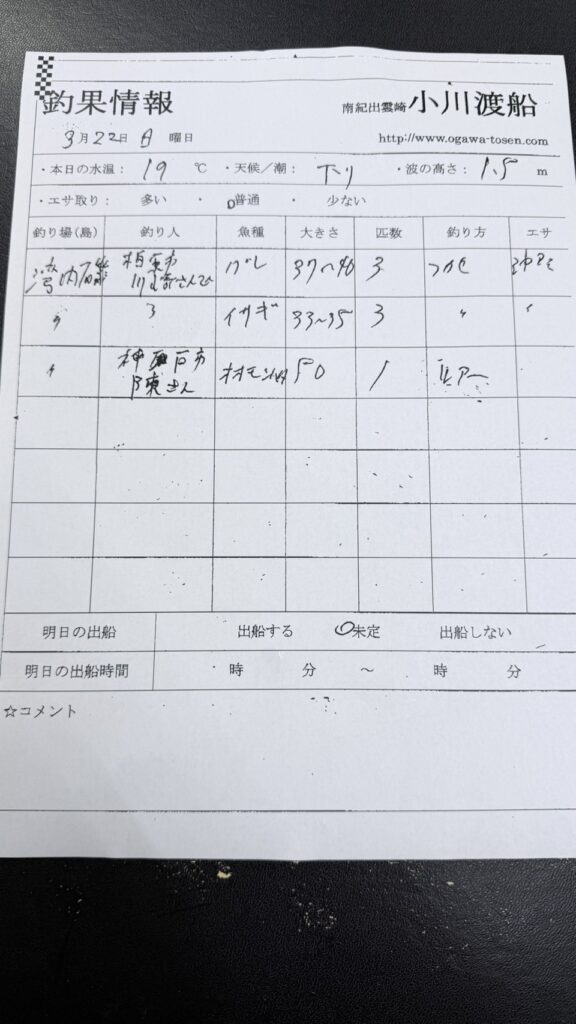 釣果情報
南紀出雲崎 小川渡船
3月22日 日 曜日
http://www.ogawa-tosen.com
・本日の水温： 19 ℃ ・天候／潮： 下り ・波の高さ： 1.5 m
・エサ取り： 多い ・ 普通 ・ 少ない
釣り場(島) 釣り人 魚種 大きさ 匹数 釣り方 エサ
湾内磯 グレ 37〜40 3 フカセ
〃 〃 イサギ 33〜35 3 〃 〃
〃 50 1 ルアー
明日の出船 出船する 未定 出船しない
明日の出船時間 時 分 〜 時 分
☆コメント